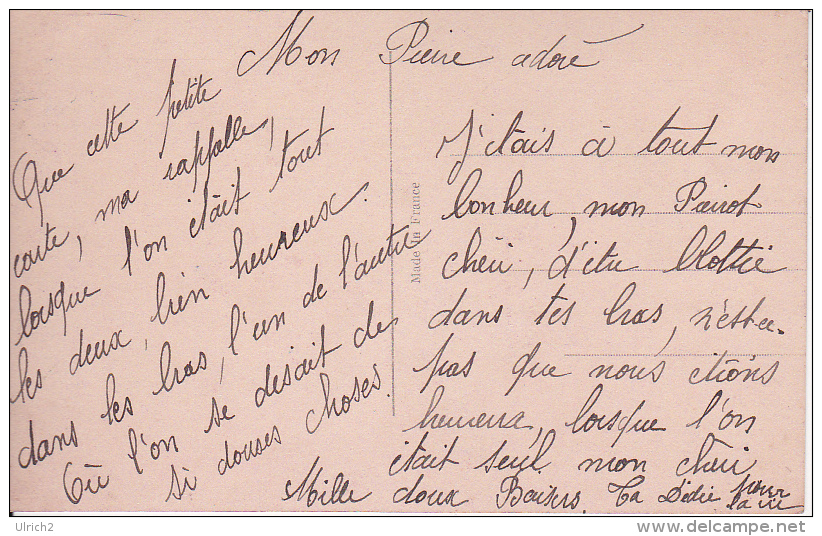 Mon Pierre adoré
Que cette petite
carte, ma rappelle,
lorsque l'on était tout
les deux, bien heureux.
dans les bras, l'un de l'autre
Où l'on se disait de
si douses choses.
J'étais à tout mon
bonheur, mon Pierrot
chéri, d'être blottie
dans tes bras, n'est-ce-
pas que nous étions
heureux, lorsque l'on
était seul mon chéri
Mille doux Baisers. Ta Dédie pour
la vie
Made in France
Ulrich2
delcampe.net